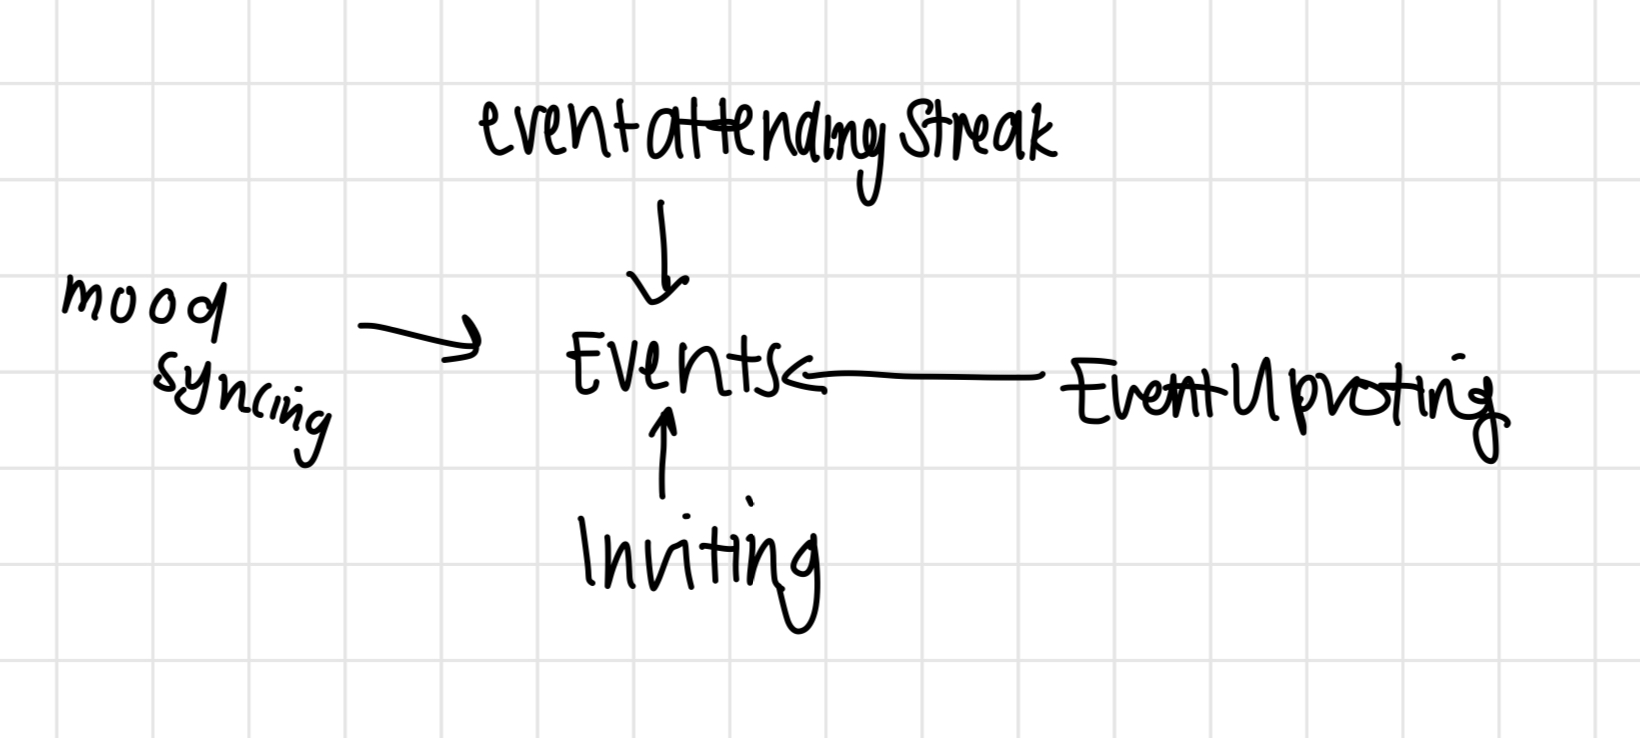 event attending streak
mood
syncing
Events
Event Upvoting
Inviting